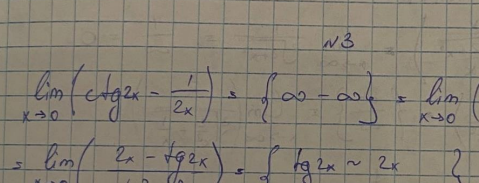 №3
lim x→0 (ctg2x - 1/2x) = {∞ - ∞} = lim x→0 (
= lim (2x - tg2x / ) = { tg2x ~ 2x }